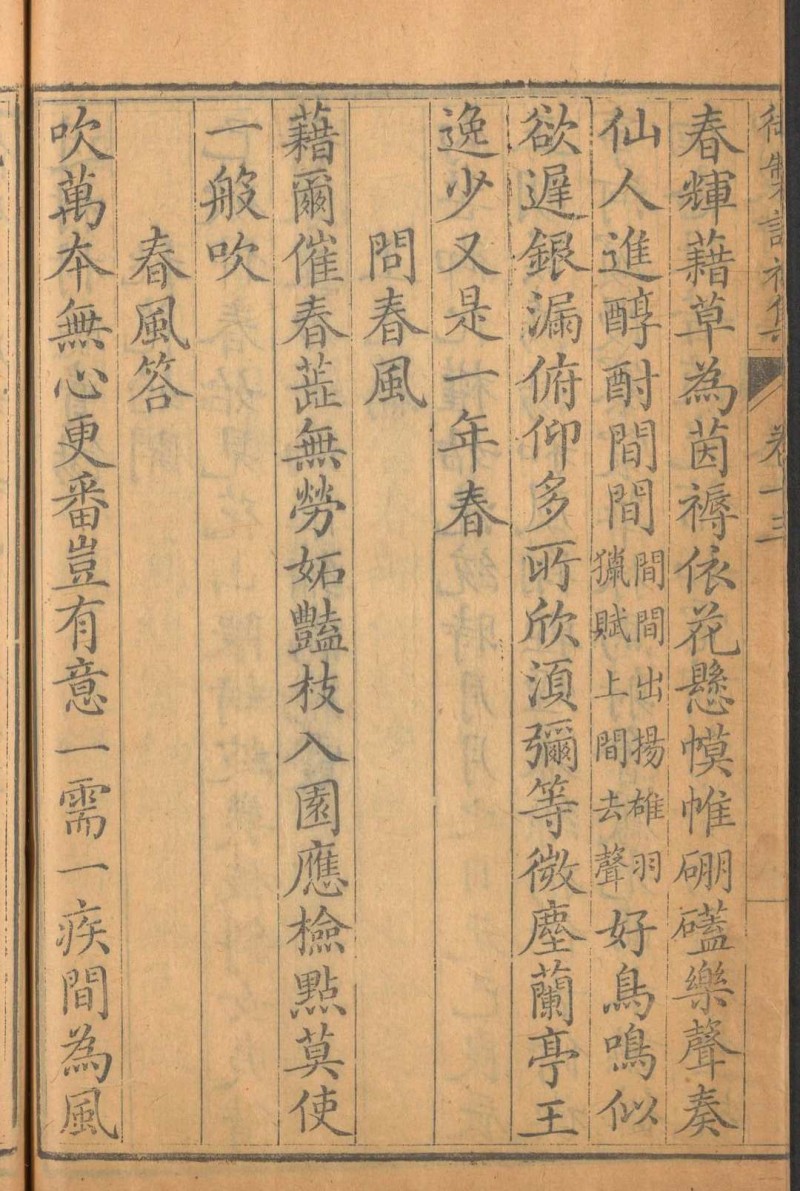 御製詩初集 卷十三
春輝藉草為茵褥依花懸幙帷硼礚樂聲奏
仙人進醇酎間間間間出揚雄羽獵賦上間去聲好鳥鳴似
欲遲銀漏俯仰多所欣湏彌等微塵蘭亭王
逸少又是一年春
問春風
藉爾催春蕋無勞妬豔枝入園應檢點莫使
一般吹
春風答
吹萬本無心更番豈有意一需一疾間為風